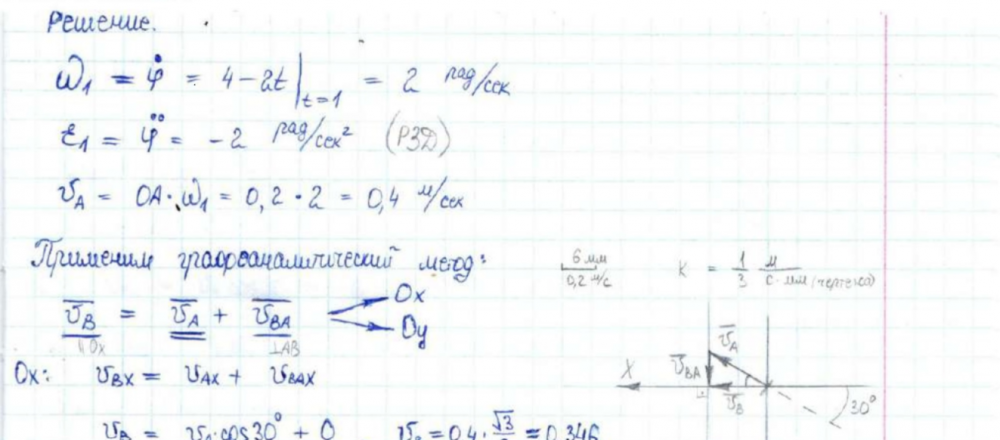 Решение.
ω₁ = φ̇ = 4-2t|t=1 = 2 рад/сек
ε₁ = φ̈ = -2 рад/сек² (РЗД)
υA = OA·ω₁ = 0,2·2 = 0,4 м/сек
Применим графоаналитический метод:
6 мм
0,2 м/с
K = 1/3 м/с·мм (чертежа)
υB = υA + υBA
Ox
Oy
||Ox
⊥AB
Ox: υBX = υAX + υBAX
υA
υBA
X
υB
30°
υB = υA·cos30° + 0 υB = 0,4·√3/2 ≈ 0,346